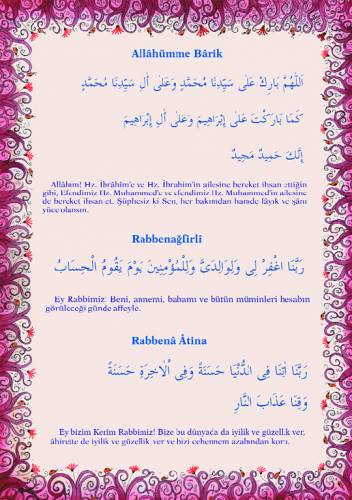 Allâhümme Bârik
اَللّٰهُمَّ بَارِكْ عَلٰى سَيِّدِنَا مُحَمَّدٍ وَعَلٰى اٰلِ سَيِّدِنَا مُحَمَّدٍ
كَمَا بَارَكْتَ عَلٰى اِبْرَاهِيمَ وَعَلٰى اٰلِ اِبْرَاهِيمَ
اِنَّكَ حَمِيدٌ مَجِيدٌ
Allâhım! Hz. İbrâhîm'e ve Hz. İbrahim'in ailesine bereket ihsan ettiğin
gibi, Efendimiz Hz. Muhammed'e ve efendimiz Hz. Muhammed'in ailesine
de bereket ihsan et. Şüphesiz ki Sen, her bakımdan hamde lâyık ve şânı
yüce olansın.
Rabbenağfirlî
رَبَّنَا اغْفِرْ لِى وَلِوَالِدَىَّ وَلِلْمُؤْمِنِينَ يَوْمَ يَقُومُ الْحِسَابُ
Ey Rabbimiz! Beni, annemi, babamı ve bütün müminleri hesabın
görüleceği günde affeyle.
Rabbenâ Âtina
رَبَّنَا اٰتِنَا فِى الدُّنْيَا حَسَنَةً وَفِى اْلاٰخِرَةِ حَسَنَةً
وَقِنَا عَذَابَ النَّارِ
Ey bizim Kerîm Rabbimiz! Bize bu dünyada da iyilik ve güzellik ver,
âhirette de iyilik ve güzellik ver ve bizi cehennem azabından koru.